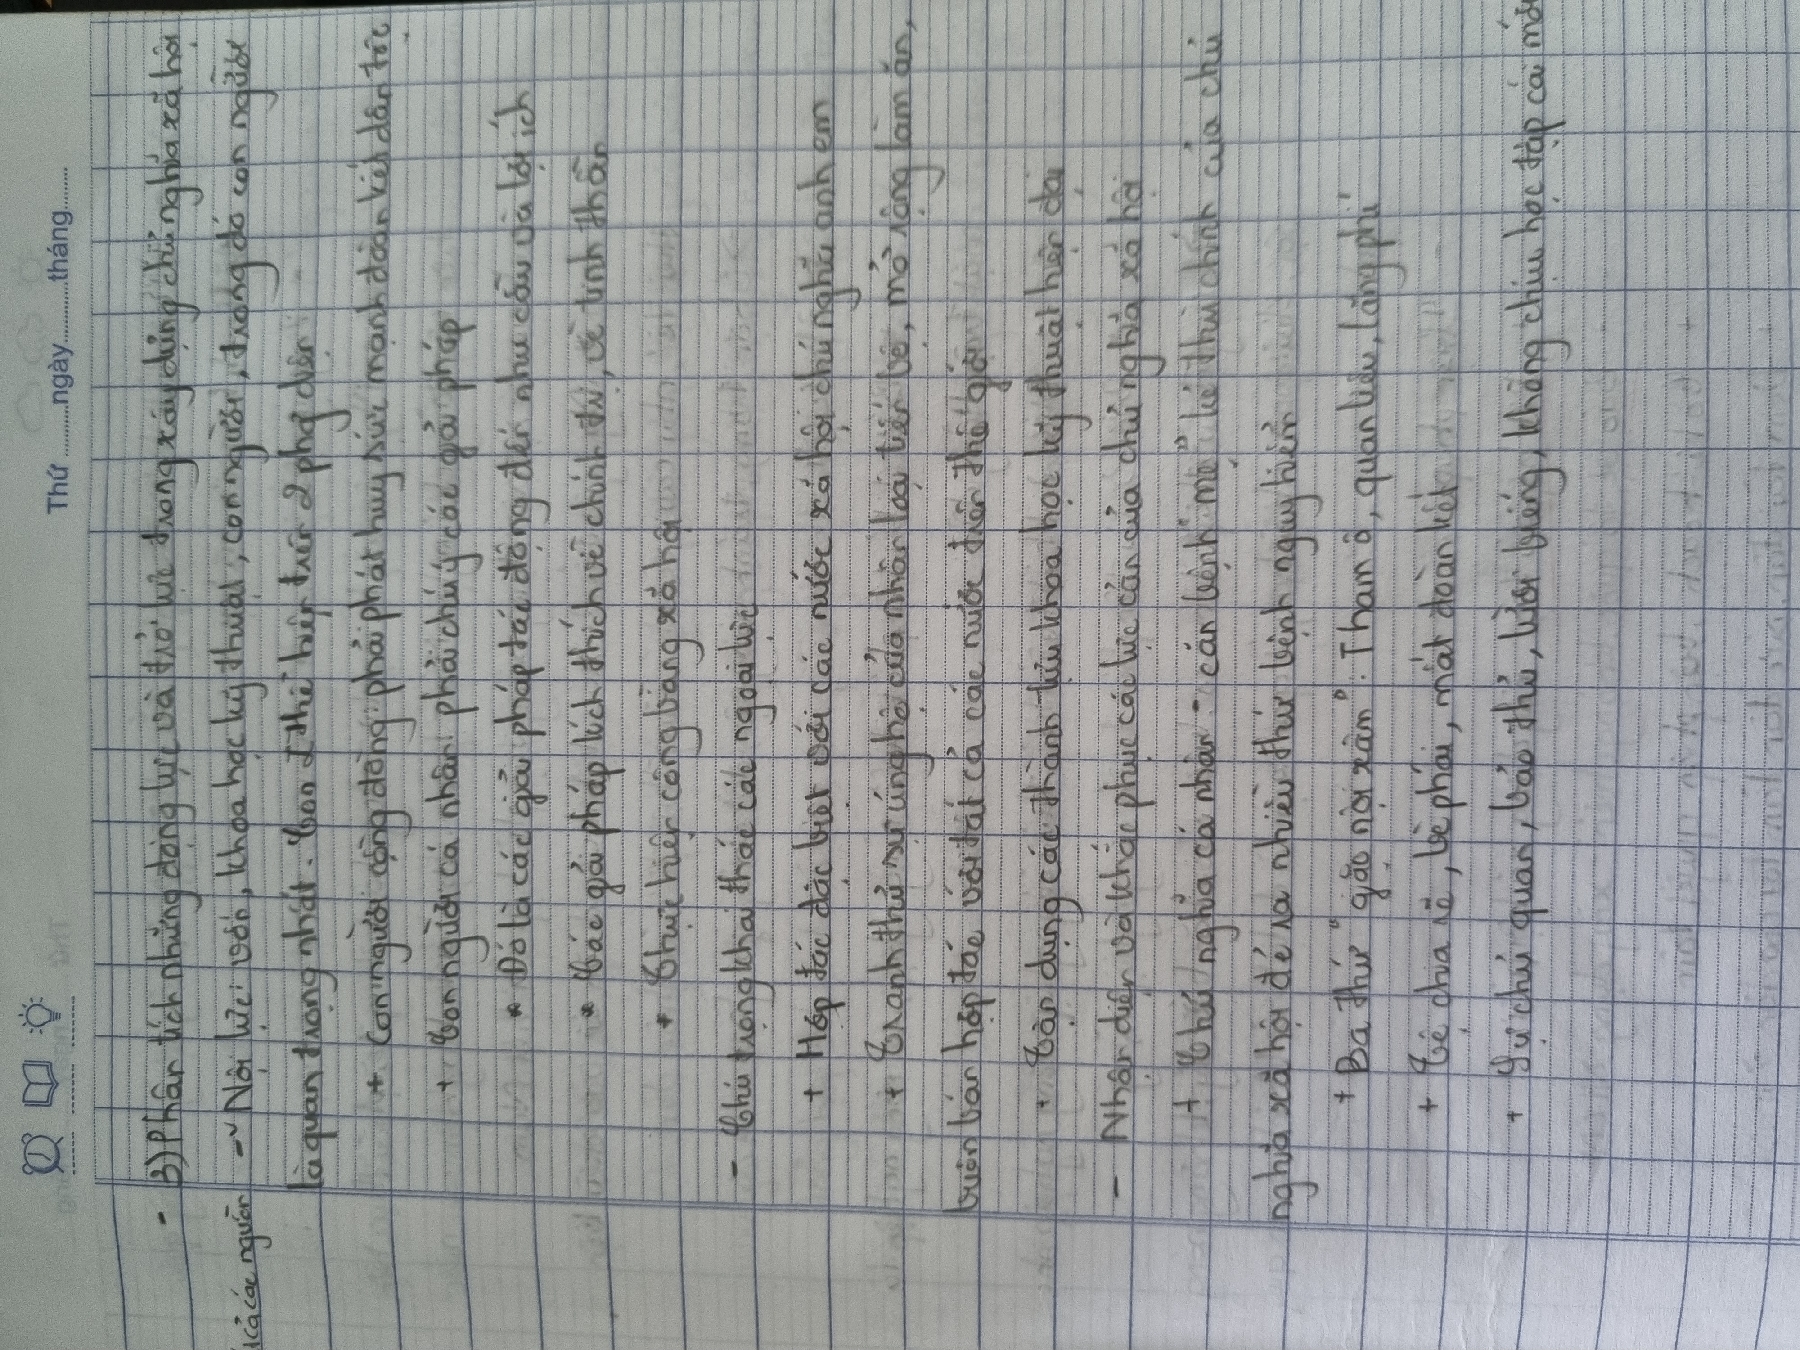 Thứ ..........ngày............tháng........
- 3) Phân tích những động lực và trở lực trong xây dựng chủ nghĩa xã hội
cả các nguồn - Nội lực: vốn, khoa học kỹ thuật, con người, trong đó con người
là quan trọng nhất. Con thể hiện trên 2 phg diện
+ Con người cộng đồng: phải phát huy sức mạnh đoàn kết dân tộc
+ Con người cá nhân: phải chú ý các giải pháp
* Đó là các giải pháp tác động đến nhu cầu và lợi ích
* Các giải pháp kích thích về chính trị, về tinh thần
* Thực hiện công bằng xã hội
- Chú trọng khai thác các ngoại lực
+ Hợp tác đặc biệt với các nước xã hội chủ nghĩa anh em
+ Tranh thủ sự ủng hộ của nhân loại tiến bộ, mở rộng làm ăn,
buôn bán hợp tác với tất cả các nước trên thế giới
+ Tận dụng các thành tựu khoa học kỹ thuật hiện đại
- Nhận diện và khắc phục các lực cản của chủ nghĩa xã hội
+ Chủ nghĩa cá nhân - căn bệnh "mẹ" kẻ thù chính của chủ
nghĩa xã hội đẻ ra nhiều thứ bệnh nguy hiểm
+ Ba thứ "giặc nội xâm": Tham ô, quan liêu, lãng phí
+ Tệ chia rẽ, bè phái, mất đoàn kết
+ Sự chủ quan, bảo thủ, lười biếng, không chịu học tập cái mới